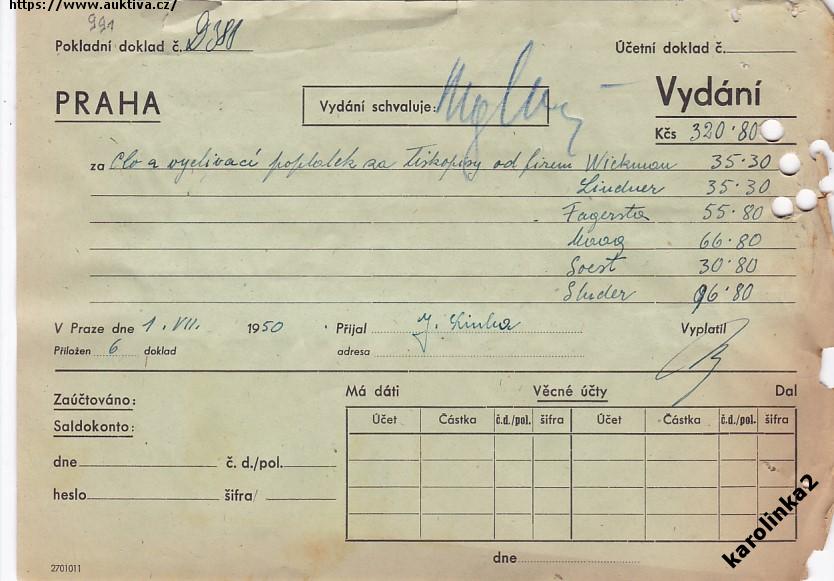 https://www.auktiva.cz/
991
Pokladní doklad č. D388
Účetní doklad č.
PRAHA
Vydání schvaluje:
Vydání
Kčs 320·80
za Clo a vyclivací poplatek za Tiskopisy od firem Wickman 35·30
Lindner 35·30
Fagersta 55·80
Maag 66·80
Soest 30·80
Studer 96·80
V Praze dne 1. VII. 1950
Přijal J.
Vyplatil
Přiložen 6 doklad
adresa
Zaúčtováno:
Saldokonto:
dne č. d./pol.
heslo šifra/
Má dáti Věcné účty Dal
Účet Částka č.d./pol. šifra Účet Částka č.d./pol. šifra
dne
2701011
karolinka2